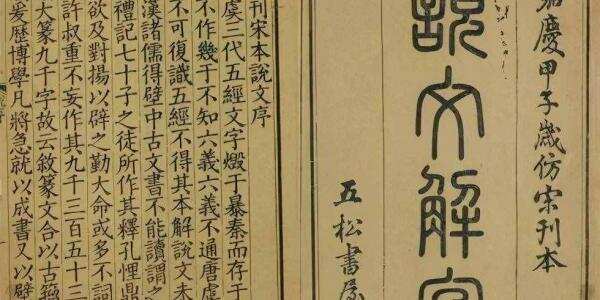 嘉慶甲子歲仿宋刊本
說文解字
五松書屋
刊宋本說文序
虞三代五經文字燬于暴秦而存于
不作幾于不知六義六義不通唐虞
不可復識五經不得其本解說文未
漢諸儒得壁中古文書不能讀謂之
禮記七十子之徒所作其釋孔悝鼎
欲及對揚以辟之勤大命或多不詞
許叔重不妄作其九千三百五十三
大篆九千字故云敘篆文合以古籀
爰歷博學凡將急就以成書又以壁